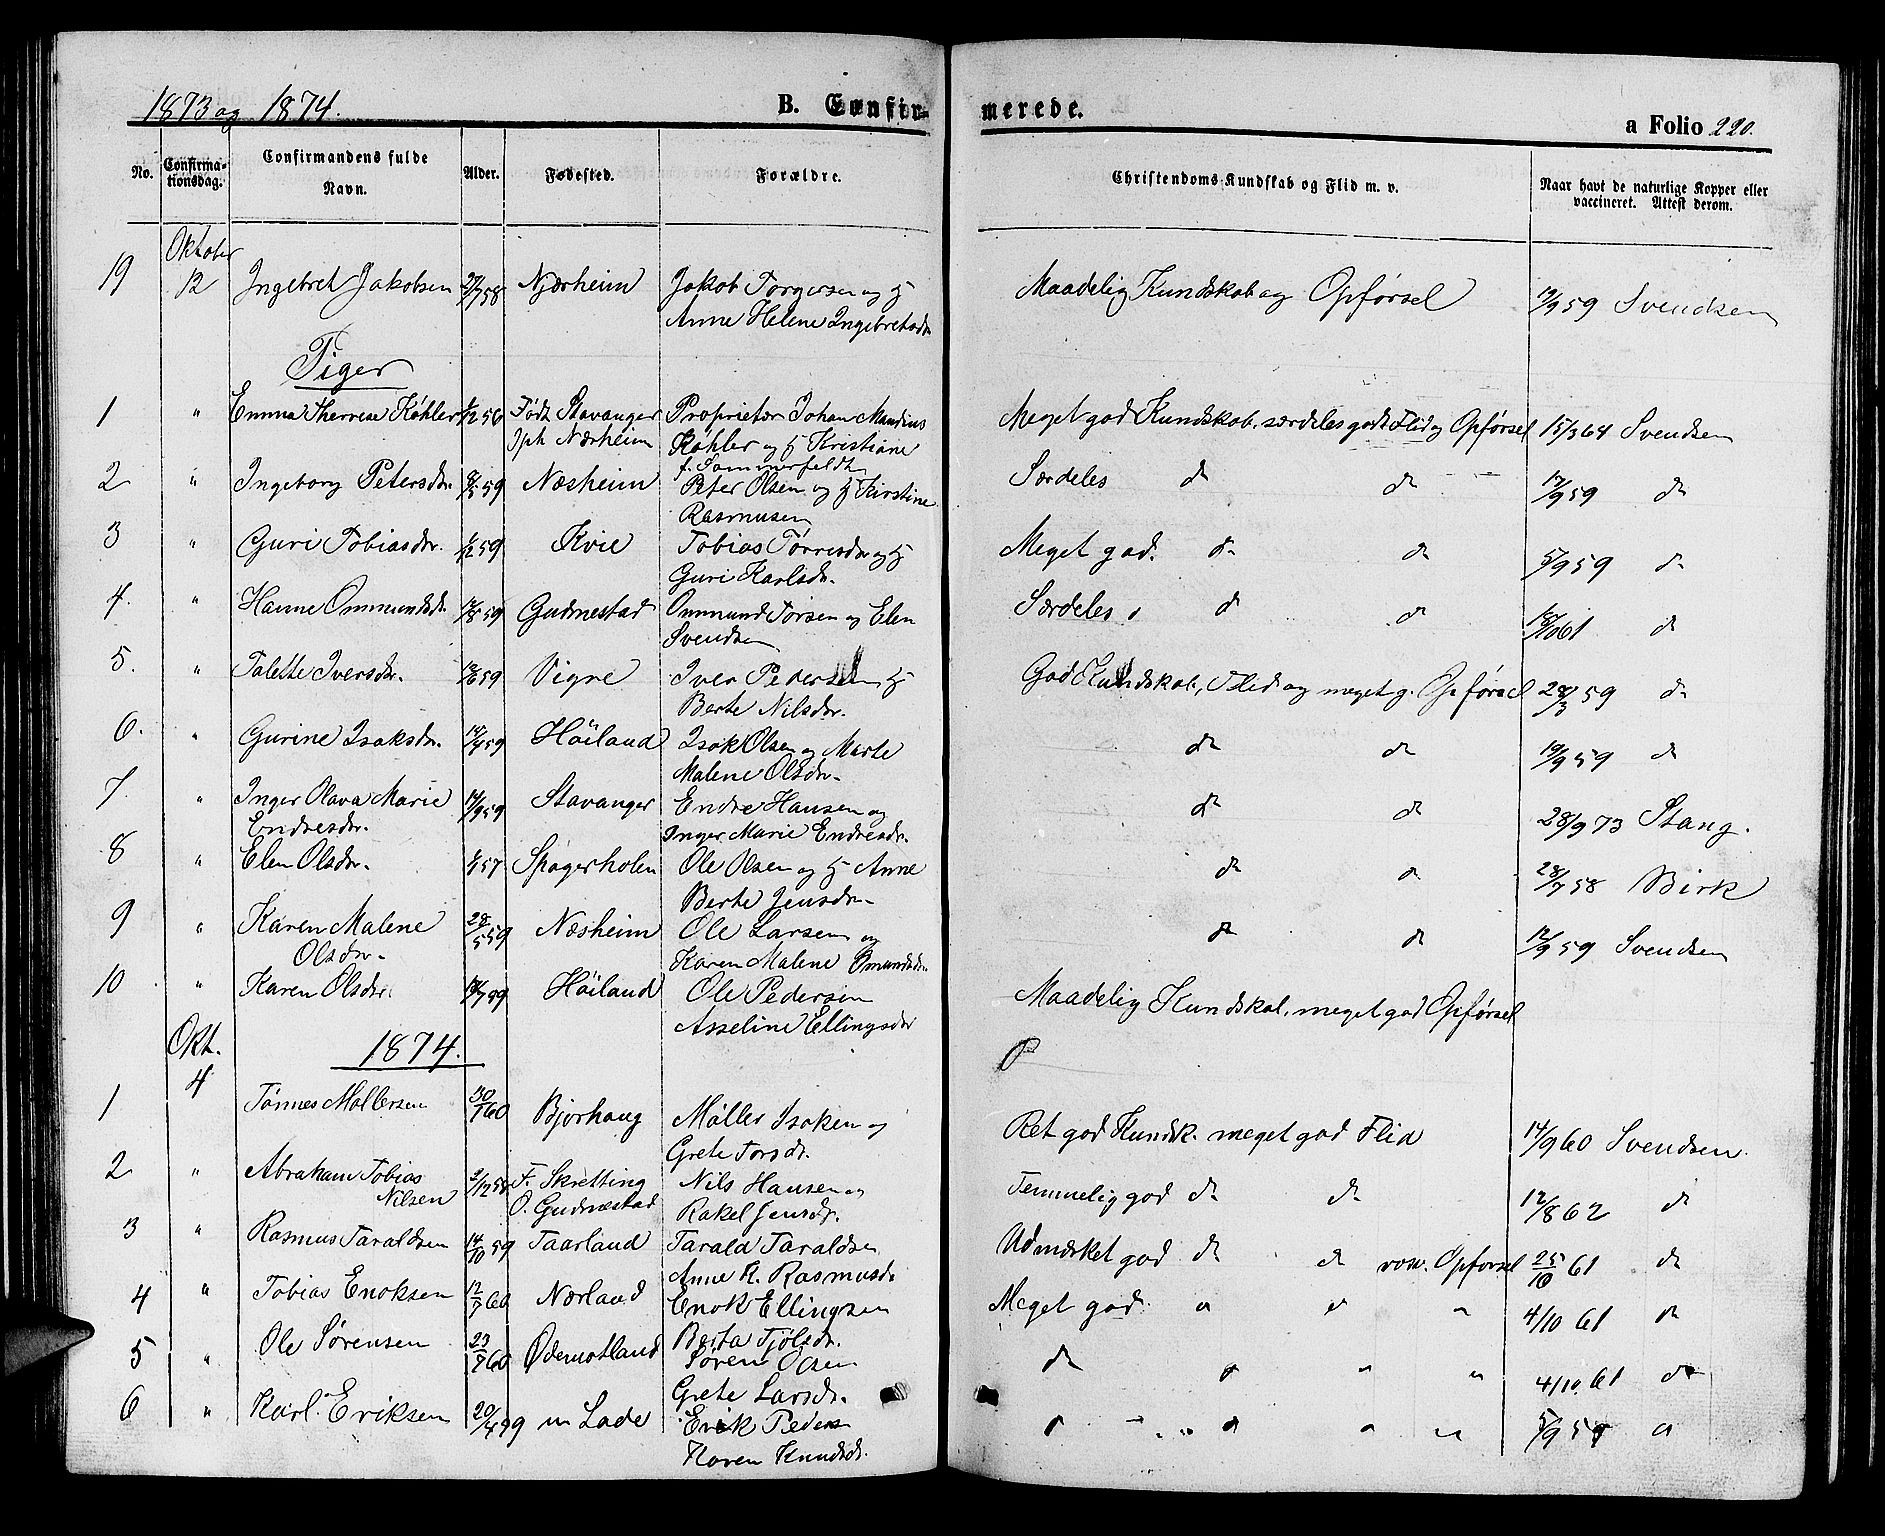 1873 og 1874.
B. Confirmerede.
a Folio 220.
No.
Confirmationsdag.
Confirmandens fulde Navn.
Alder.
Fødested.
Forældre.
Christendoms Kundskab og Flid m. v.
Naar havt de naturlige Kopper eller vaccineret. Attest derom.
Oktober
19 12 Ingebret Jakobsen 58 Njærheim Jakob Torgersen og H Maadelig Kundskab og Opførsel 12/9 59 Svendsen
Anne Helene Ingebretsdr.
Piger
1 " Emma Therese Køhler 56 Født Stavanger Proprietær Johan Mandius Meget god Kundskab, særdeles godt Flid og Opførsel 15/3 64 Svendsen
Oph Nærheim Køhler og H Kristiane
f. Sommerfeldt
2 " Ingeborg Petersdr. 59 Næsheim Peter Olsen og H Kirstine Særdeles do do 17/9 59 do
Rasmusen
3 " Guri Tobiasdr. 1/2 59 Kvie Tobias Tørresdr og H Meget god. do do 5/9 59 do
Guri Karlsdr.
4. " Hanne Ommundsdr. 59 Gudmestad Ommund Torsen og Elen Særdeles do do 61 do
Svendsen
5. " Talette Iversdr. 59 Vigre Iver Pedersen, H God Kundskab, Flid og meget g. Opførsel 28/3 59 do
Berte Nilsdr.
6. " Gurine Isaksdr. 59 Høiland Isak Olsen og Marte do do 19/9 59 do
Malene Olsdr.
7. " Inger Olava Marie 14/9 59 Stavanger Endre Hansen og do do 28/9 73 Stang.
Endresdr. Inger Marie Endresdr.
8 " Elen Olsdr. 57 Spøgerholen Ole Olsen og H Anne do do 28/7 58 Birk
Berte Jensdr.
9 " Karen Malene 28/5 59 Næsheim Ole Larsen og do do 12/9 59 Svendsen
Olsdr. Karen Malene Omundsdr.
10 " Karen Olsdr. Høiland Ole Pedersen Maadelig Kundskab, meget god Opførsel
Asseline Ellingsdr
Okt. 1874.
1 4 Tønnes Møllersen 30/7 60 Bjorhaug Møller Isaksen og Ret god Kundsk. meget god Flid 14/9 60 Svendsen.
Grete Torsdr.
2 " Abraham Tobias 2/12 58 F. Skretting Nils Hansen og Temmelig god do do 12/8 62 do
Nilsen O. Gudmestad Rakel Jensdr.
3 " Rasmus Taraldsen 14/10 59 Taarland Tarald Taraldsen Udmærket god do do rosv. Opførsel 25/10 61 do
Anne R. Rasmusdr
4 " Tobias Enoksen 12/7 60 Nærland Enok Ellingsen Meget god " " " 4/10 61 do
Berta Tjølsdr.
5 " Ole Sørensen 23/7 60 Ødemotland Søren Olsen do " " 4/10 61 do
Grete Larsdr.
6 " Karl Eriksen 20/4 59 Lade Erik Peders do do " " 5/9 59 "
Karen Knudsdr.